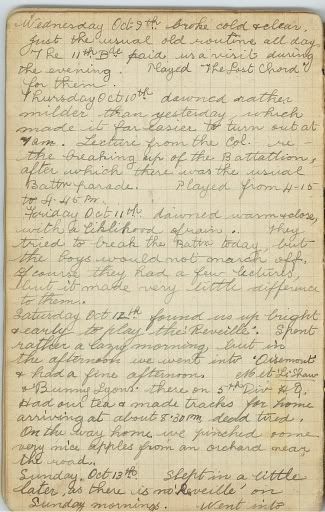 Wednesday Oct 9th broke cold & clear.
Just the usual old routine all day.
The 11th Bde paid us a visit during
the evening. Played "The Lost Chord"
for them.
Thursday Oct 10th dawned rather
milder than yesterday which
made it far easier to turn out at
7am. Lecture from the Col. re -
the breaking up of the Battalion,
after which there was the usual
Battn parade. Played from 4-15
to 4.45 Pm.
Friday Oct 11th dawned warm & close,
with a liklihood of rain. They
tried to break the Battn today, but
the boys would not march off.
Of course they had a few lectures,
but it made very little difference
to them.
Saturday Oct 12th found us up bright
& early to play the "Reveille". Spent
rather a lazy morning, but in
the afternoon we went into "Oisemont"
& had a fine afternoon. Met Shaw
& Bunny Lyons there on 5th Div H.Q.
Had our tea & made tracks for home
arriving at about 8.30 pm dead tired.
On the way home we pinched some
very nice apples from an orchard near
the road.
Sunday. Oct 13th. Slept in a little
later, as there is no Reveille on
Sunday mornings. Went into